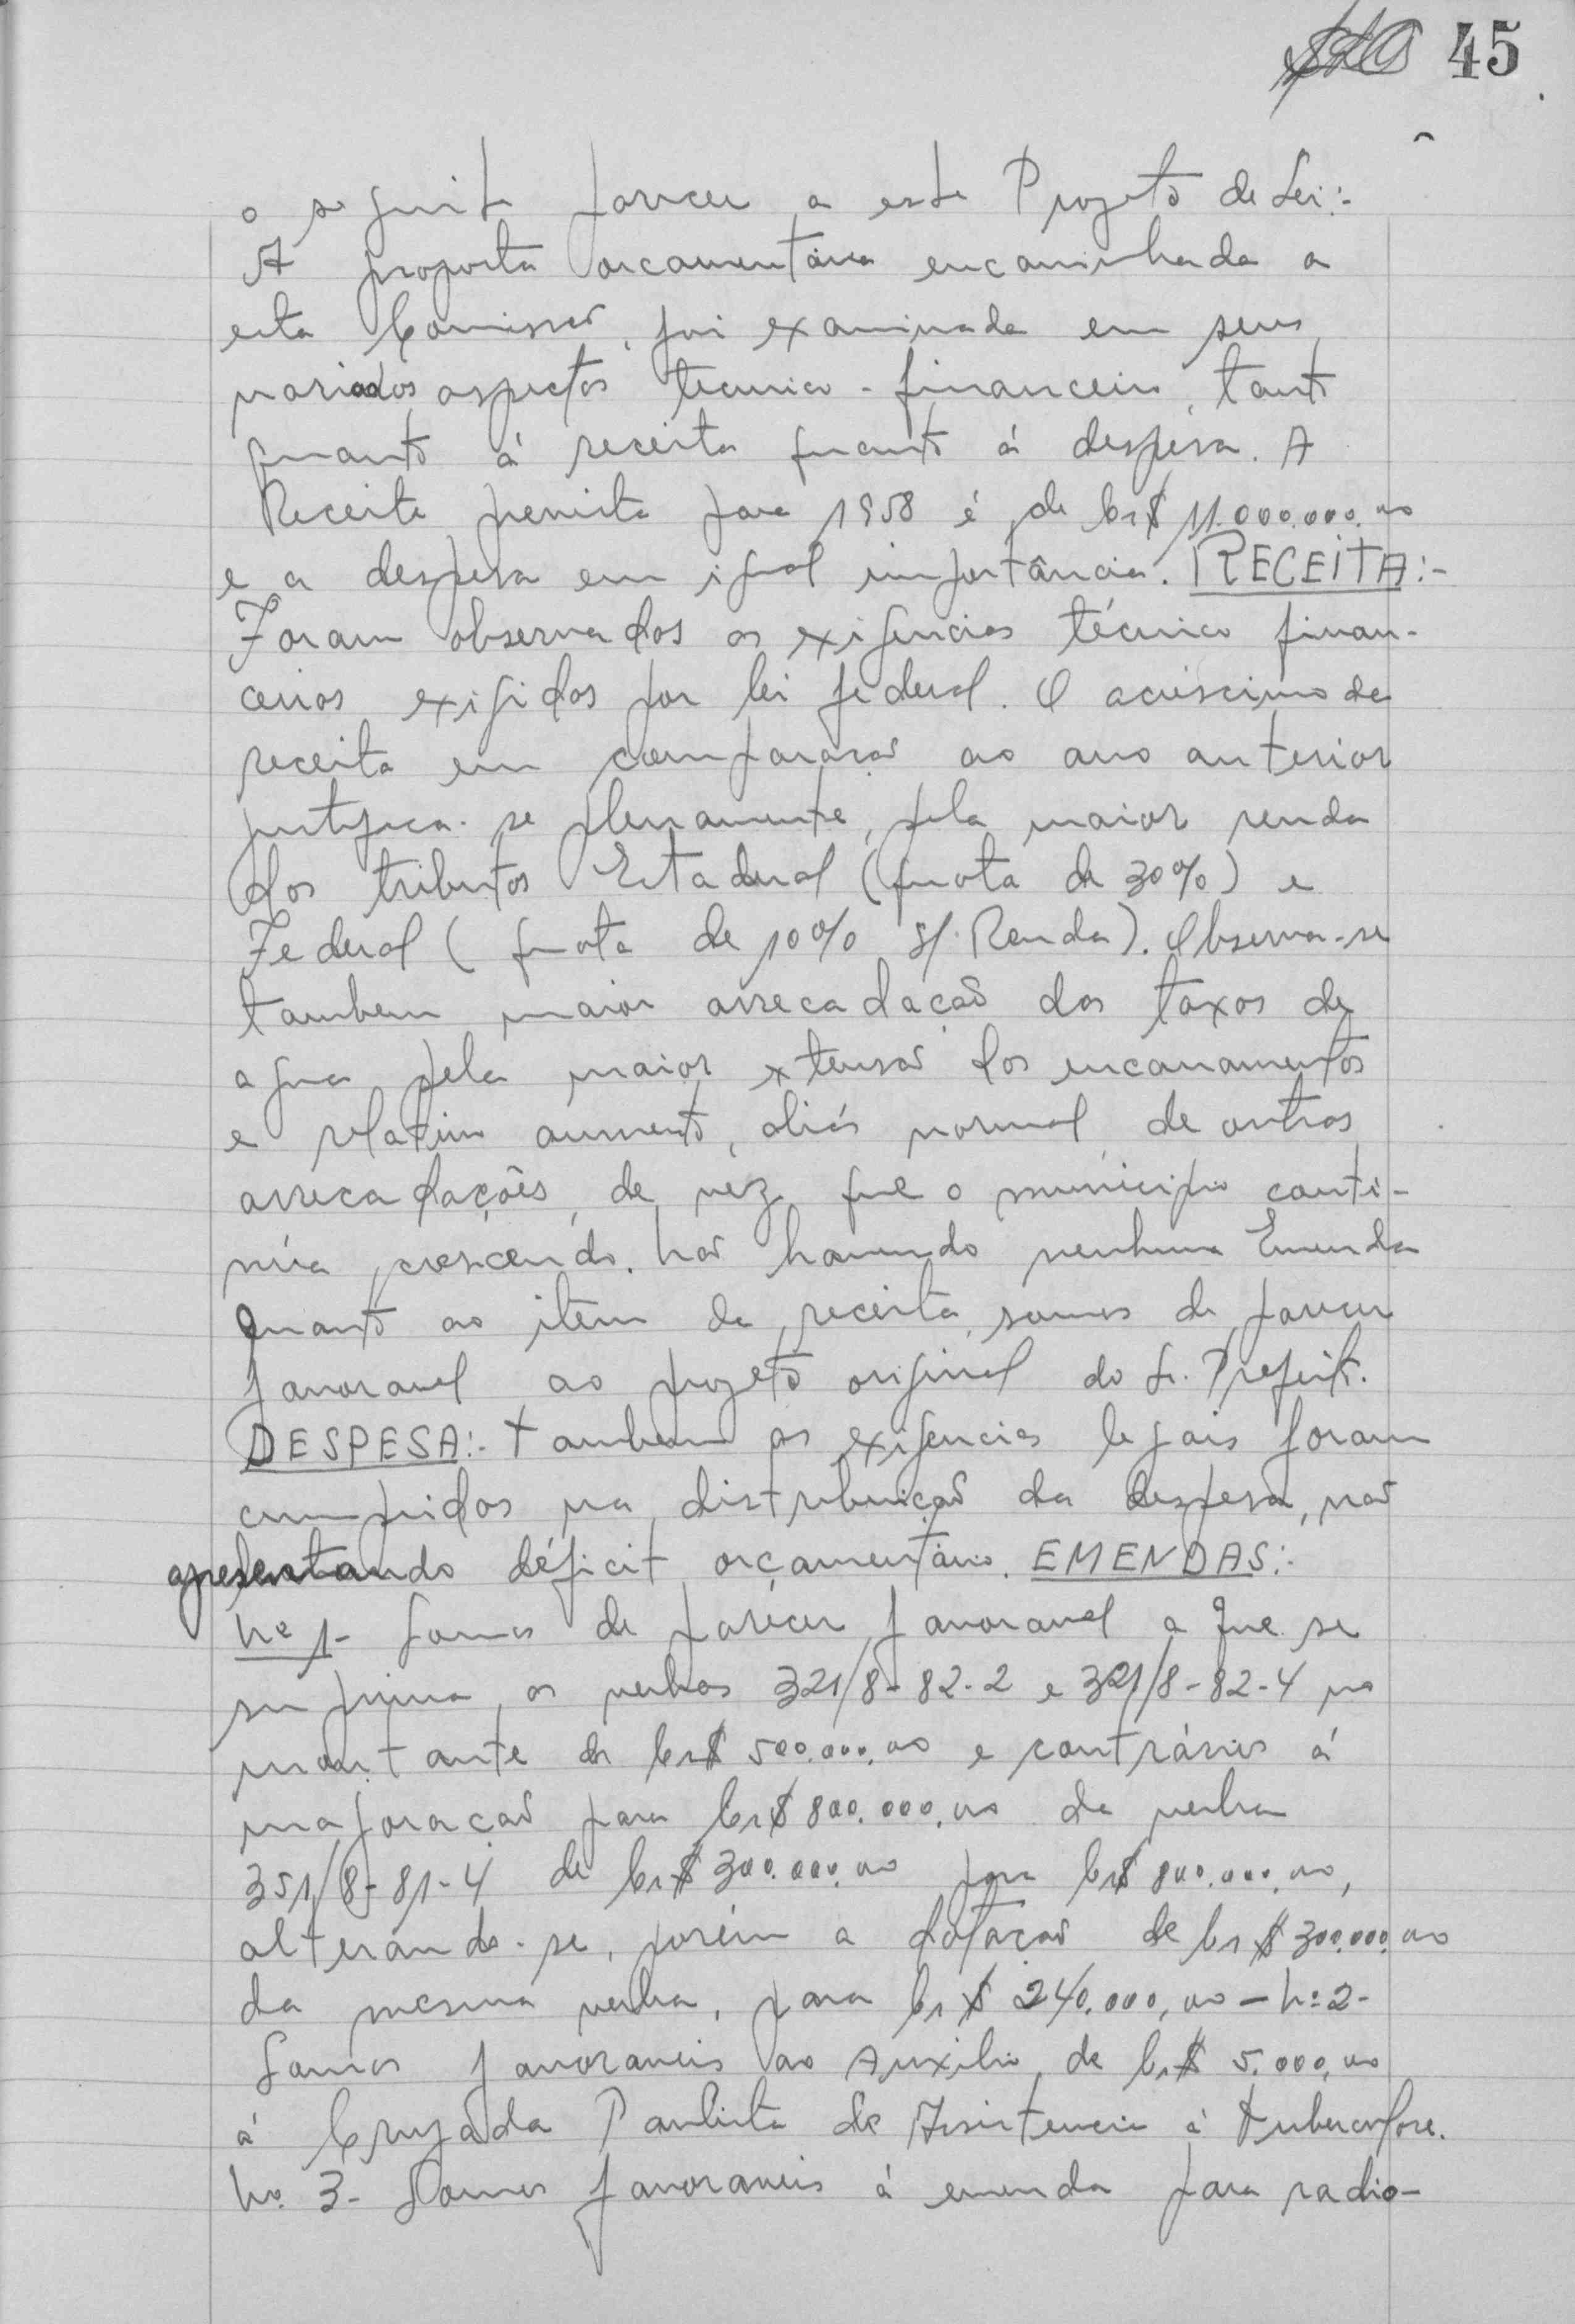 45
o seguinte parecer a este Projeto de Lei:-
A proposta orcamentária encaminhada a
esta Comissão, foi examinada em seus
variados aspectos tecnico-financeiro, tanto
quanto á receita quanto á despesa. A
Receita prevista para 1958 é de Cr$ 11.000.000,00
e a despesa em igual importância. RECEITA:-
Foram observadas as exigencias técnico finan-
ceiras exigidas por lei federal. O acréscimo da
receita em comparação ao ano anterior
justifica-se plenamente, pela maior renda
dos tributos Estadual (quota de 30%) e
Federal (quota de 10% s/. Renda). Observa-se
tambem maior arrecadação das taxas de
agua pela maior extensão dos encanamentos
e relativo aumento, aliás normal, de outras
arrecadações, de vez que o município conti-
núa crescendo. Não havendo nenhuma Emenda
Quanto ao item da receita, somos de parecer
favoravel ao projeto original do Sr. Prefeito.
DESPESA:- Tambem as exigencias legais foram
cumpridas na distribuição da despesa, não
apresentando déficit orçamentário. EMENDAS:-
Nº 1- Somos de parecer favoravel a que se
suprima as verbas 321/8-82-2 e 321/8-82-4 no
montante de Cr$ 500.000,00 e contrários á
majoração para Cr$ 800.000,00 da verba
351/8-81-4 de Cr$ 300.000,00 para Cr$ 800.000,00,
alterando-se, porém a dotação de Cr$ 300.000,00
da mesma verba, para Cr$ 240.000,00 - Nº 2-
Somos favoraveis ao Auxilio de Cr$ 5.000,00
á Cruzada Paulista de Assistencia á Tuberculose.
Nº 3- Somos favoraveis á emenda para radio-